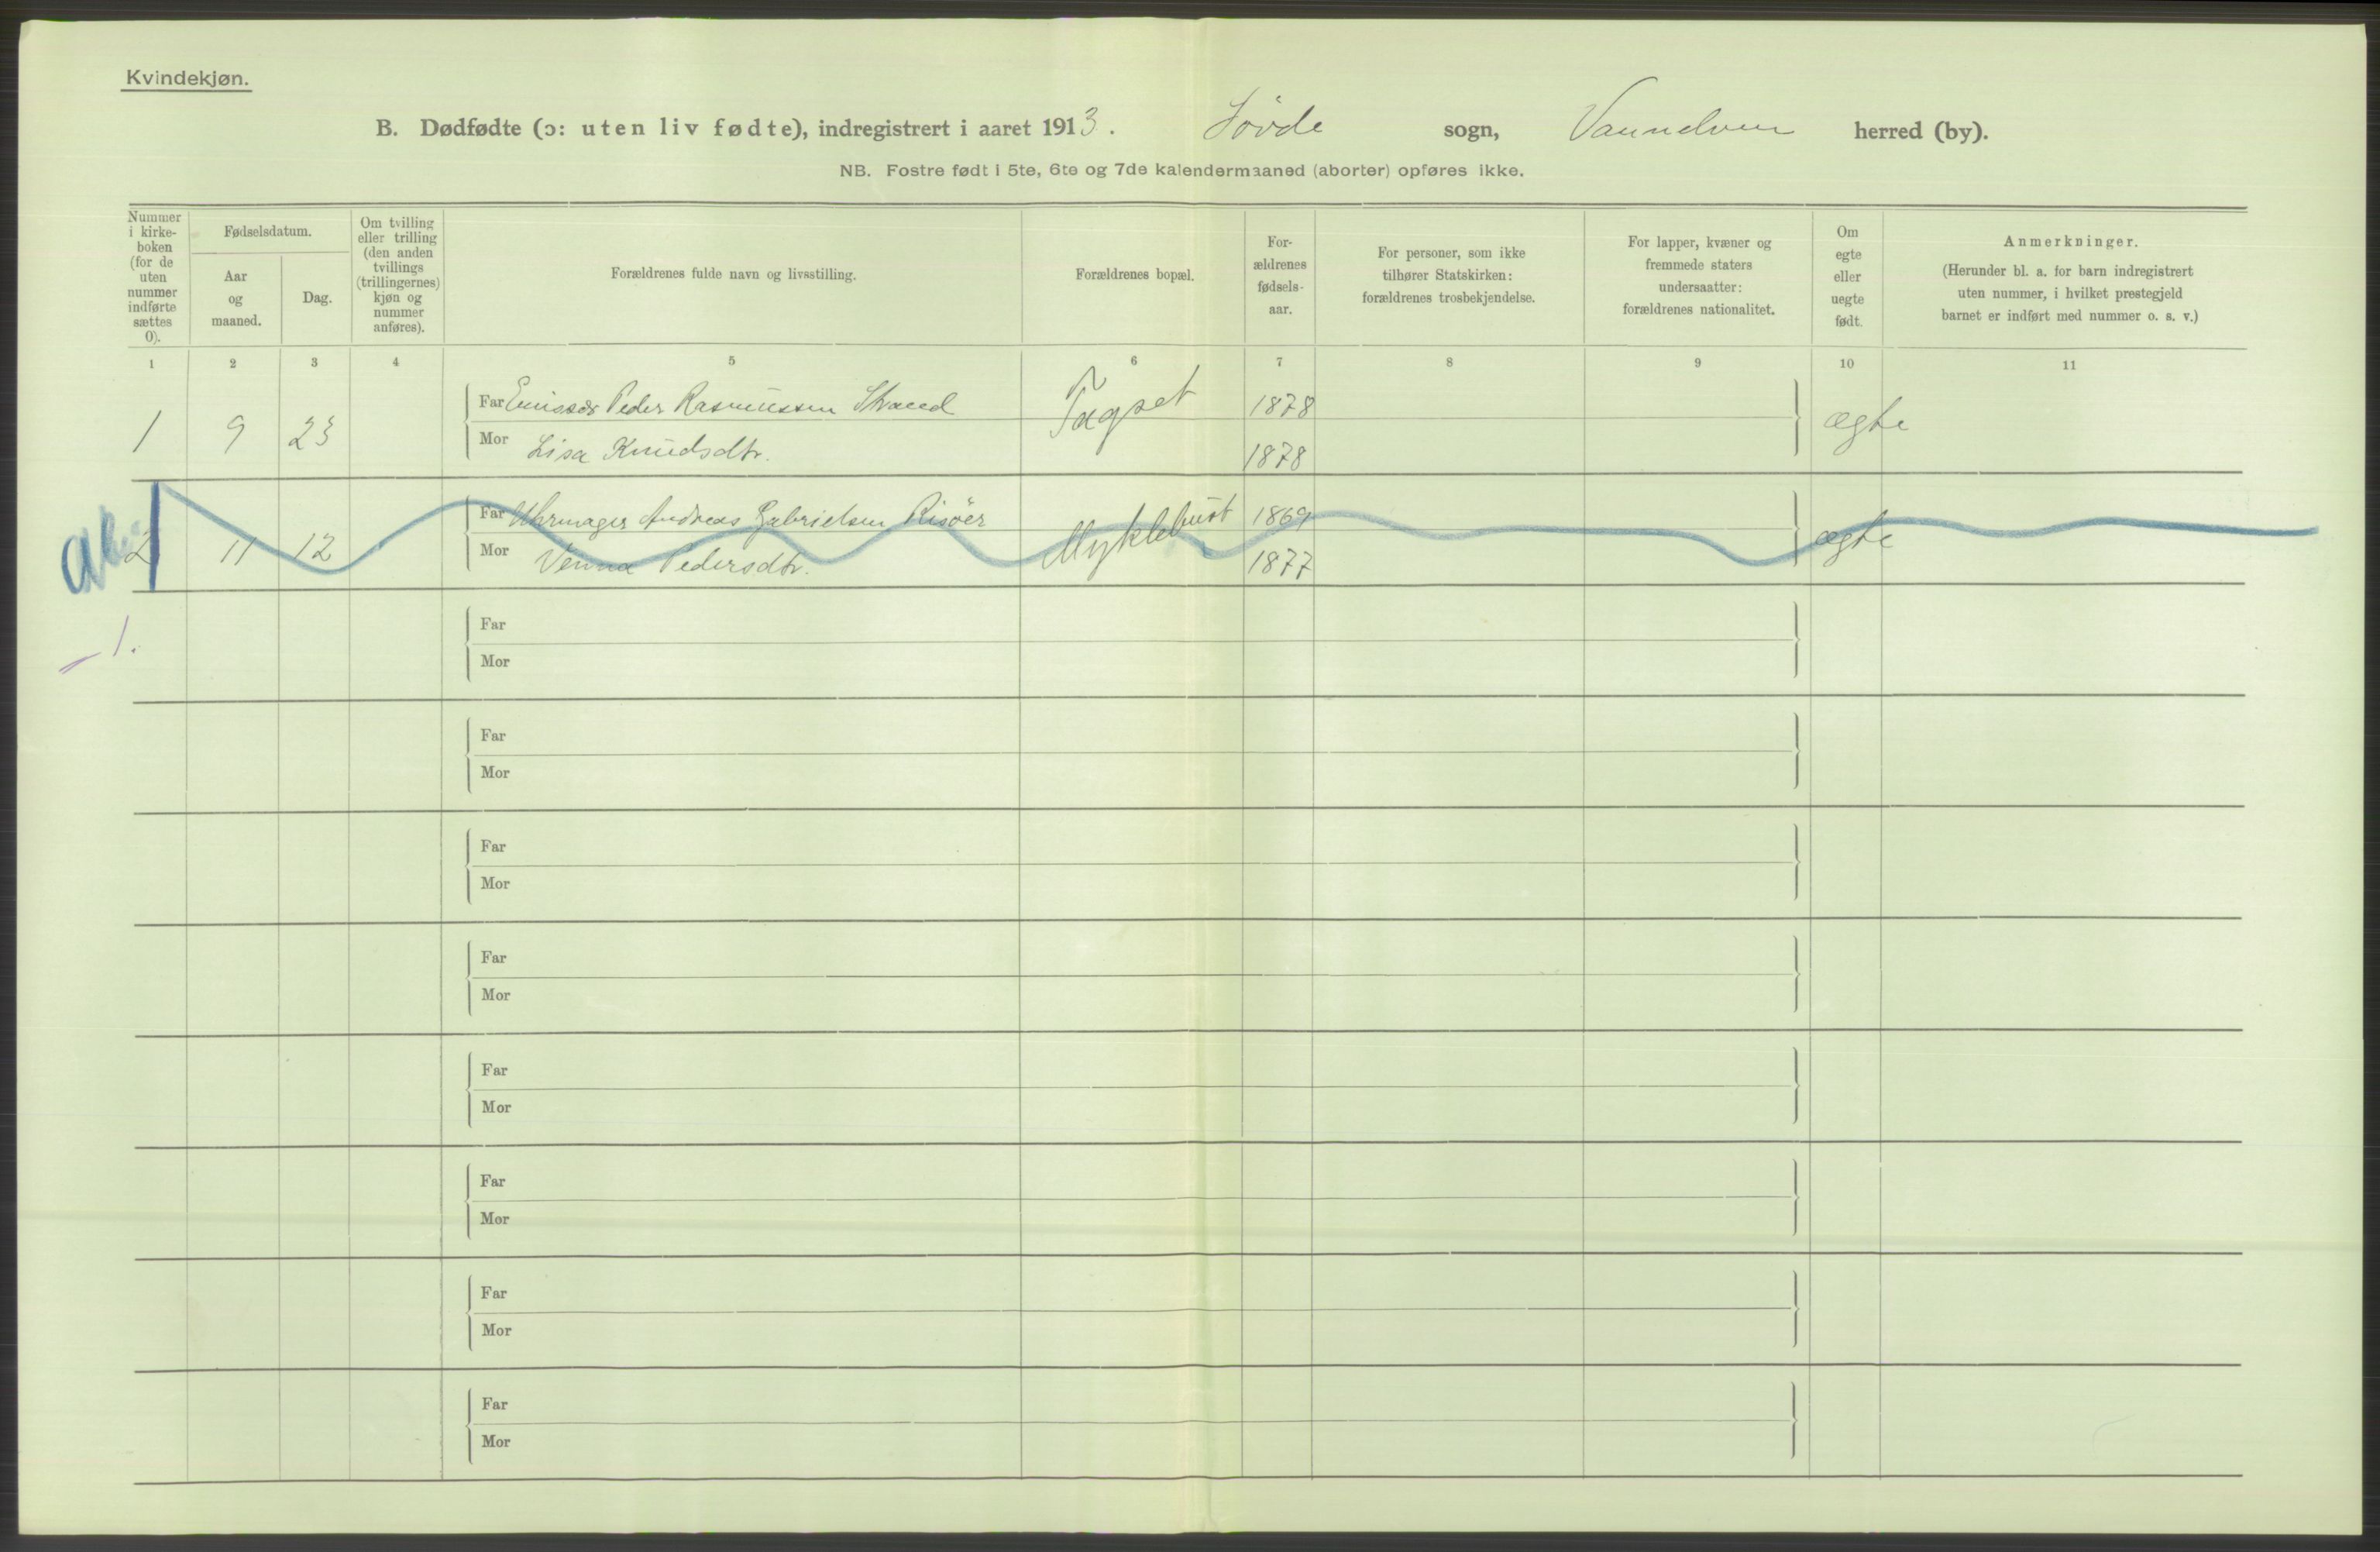 Kvindekjøn.
B. Dødfødte (ɔ: uten liv fødte), indregistrert i aaret 1913. Søvde sogn, Vannelven herred (by).
NB. Fostre født i 5te, 6te og 7de kalendermaaned (aborter) opføres ikke.
Nummer
i kirke-
boken
(for de
uten
nummer
indførte
sættes
0).
Fødselsdatum.
Aar
og
maaned.
Dag.
Om tvilling
eller trilling
(den anden
tvillings
(trillingernes)
kjøn og
nummer
anføres).
Forældrenes fulde navn og livsstilling.
Forældrenes bopæl.
For-
ældrenes
fødsels-
aar.
For personer, som ikke
tilhører Statskirken:
forældrenes trosbekjendelse.
For lapper, kvæner og
fremmede staters
undersaatter:
forældrenes nationalitet.
Om
egte
eller
uegte
født.
Anmerkninger.
(Herunder bl. a. for barn indregistrert
uten nummer, i hvilket prestegjeld
barnet er indført med nummer o. s. v.)
1 2 3 4 5 6 7 8 9 10 11
1 9 23 Far Emissær Peder Rasmussen Strand 1878 ægte
Mor Lisa Knudsdtr. 1878
2 11 12 Far Uhrmager Andreas Gabrielsen Risöer Myklebust 1869 ægte
Mor Venna Pedersdtr. 1877
1.
Far
Mor
Far
Mor
Far
Mor
Far
Mor
Far
Mor
Far
Mor
Far
Mor
Far
Mor